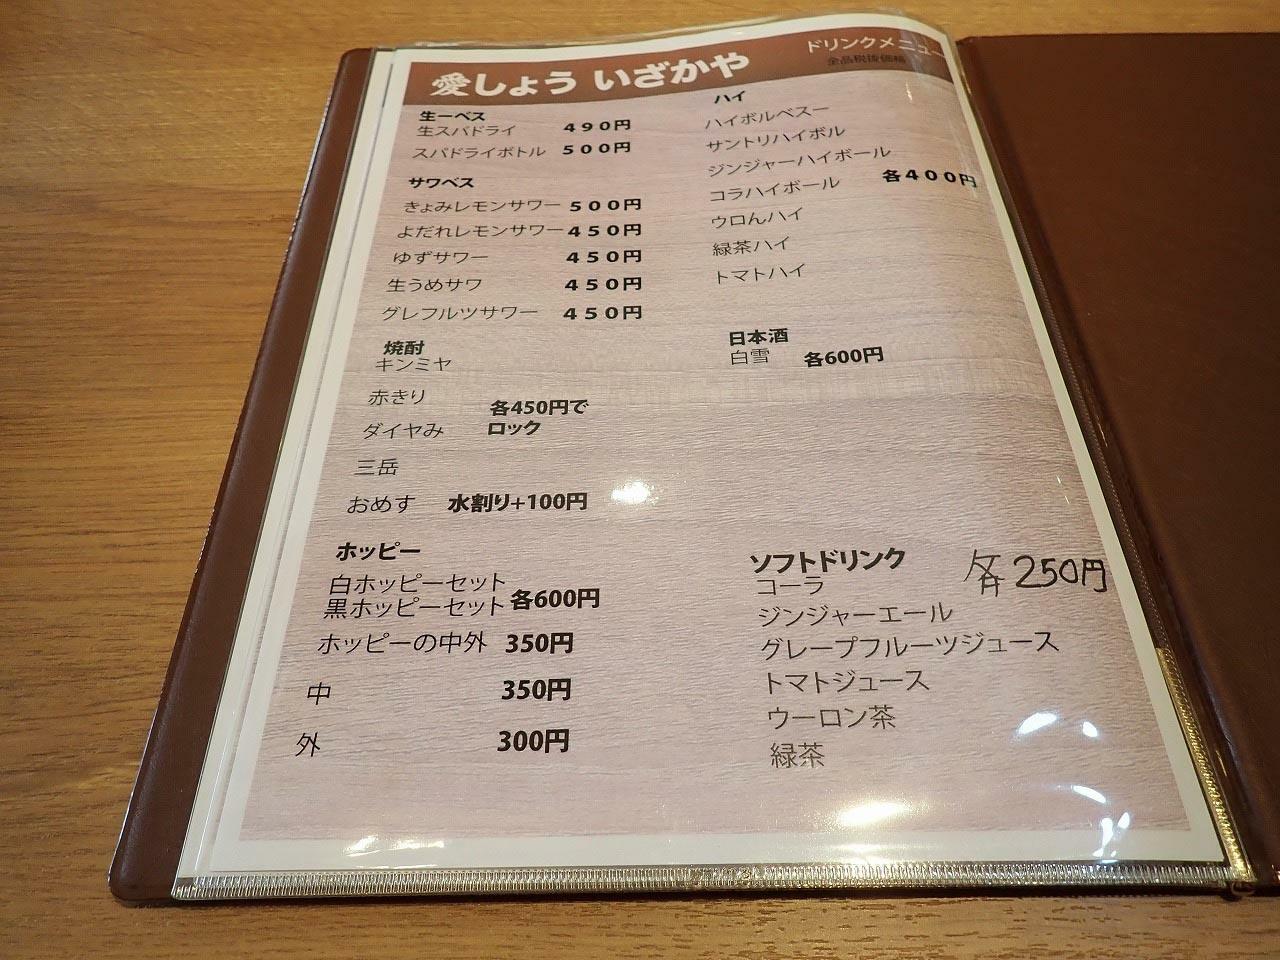 愛しょう いざかや
ドリンクメニュー
全品税抜価格
生ーベス
生スパドライ 490円
スパドライボトル 500円
サワベス
きょみレモンサワー 500円
よだれレモンサワー 450円
ゆずサワー 450円
生うめサワ 450円
グレフルツサワー 450円
焼酎
キンミヤ
赤きり
各450円で
ダイヤみ ロック
三岳
おめす 水割り+100円
ホッピー
白ホッピーセット
黒ホッピーセット 各600円
ホッピーの中外 350円
中 350円
外 300円
ハイ
ハイボルベスー
サントリハイボル
ジンジャーハイボール
コラハイボール 各400円
ウロんハイ
緑茶ハイ
トマトハイ
日本酒
白雪 各600円
ソフトドリンク 各250円
コーラ
ジンジャーエール
グレープフルーツジュース
トマトジュース
ウーロン茶
緑茶